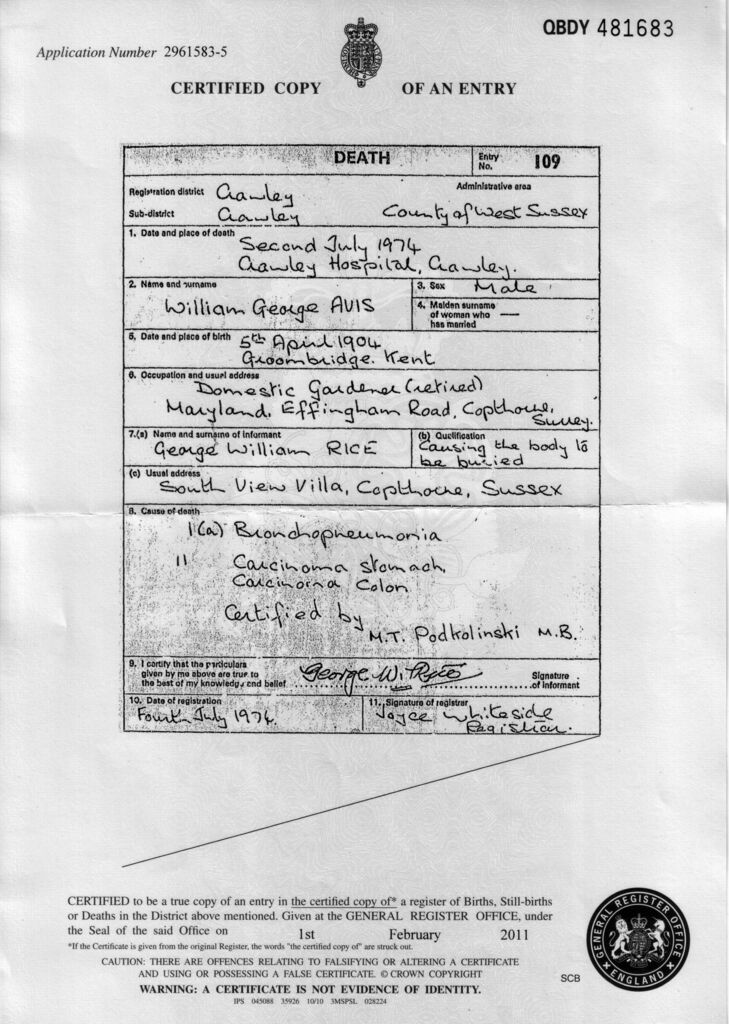 QBDY 481683
Application Number 2961583-5
CERTIFIED COPY OF AN ENTRY
DEATH
Entry No. 109
Registration district Crawley
Administrative area
Sub-district Crawley
County of West Sussex
1. Date and place of death
Second July 1974
Crawley Hospital, Crawley.
2. Name and surname
William George AVIS
3. Sex Male
4. Maiden surname
of woman who —
has married
5. Date and place of birth 5th April 1904
Groombridge. Kent
6. Occupation and usual address
Domestic Gardener (retired)
Maryland, Effingham Road, Copthorne,
Surrey.
7.(a) Name and surname of informant
George William RICE
(b) Qualification
Causing the body to
be buried
(c) Usual address
South View Villa, Copthorne, Sussex
8. Cause of death
I(a) Bronchopneumonia
II Carcinoma stomach
Carcinoma Colon
Certified by
M.T. Podkolinski M.B.
9. I certify that the particulars
given by me above are true to
the best of my knowledge and belief
George W. Rice
Signature
of informant
10. Date of registration
Fourth July 1974.
11. Signature of registrar
Joyce Whiteside
Registrar.
CERTIFIED to be a true copy of an entry in the certified copy of* a register of Births, Still-births
or Deaths in the District above mentioned. Given at the GENERAL REGISTER OFFICE, under
the Seal of the said Office on 1st February 2011
*If the Certificate is given from the original Register, the words "the certified copy of" are struck out.
CAUTION: THERE ARE OFFENCES RELATING TO FALSIFYING OR ALTERING A CERTIFICATE
AND USING OR POSSESSING A FALSE CERTIFICATE. © CROWN COPYRIGHT
WARNING: A CERTIFICATE IS NOT EVIDENCE OF IDENTITY.
IPS 045088 35926 10/10 3MSPSL 028224
SCB
GENERAL REGISTER OFFICE
ENGLAND